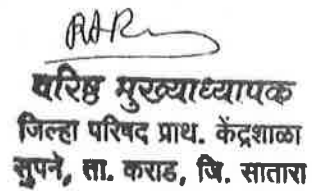 वरिष्ठ मुख्याध्यापक
जिल्हा परिषद प्राथ. केंद्रशाळा
सुपने, ता. कराड, जि. सातारा